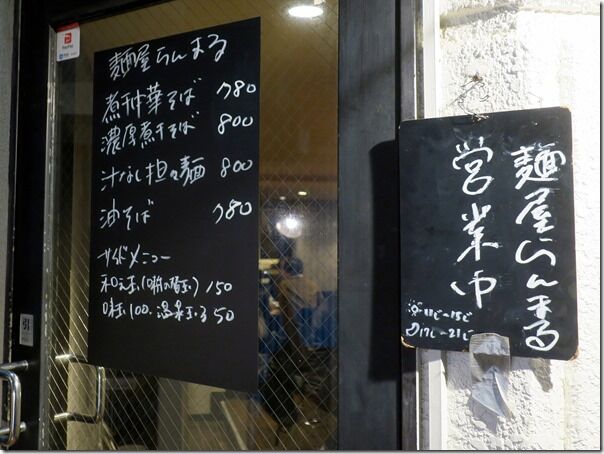 PayPay
麺屋らんまる
煮干中華そば 780
濃厚煮干そば 800
汁なし担々麺 800
油そば 780
サイドメニュー
和え玉(10種の替玉) 150
味玉 100. 温泉玉子 50
麺屋らんまる
営業中
11じ〜15じ
17じ〜21じ